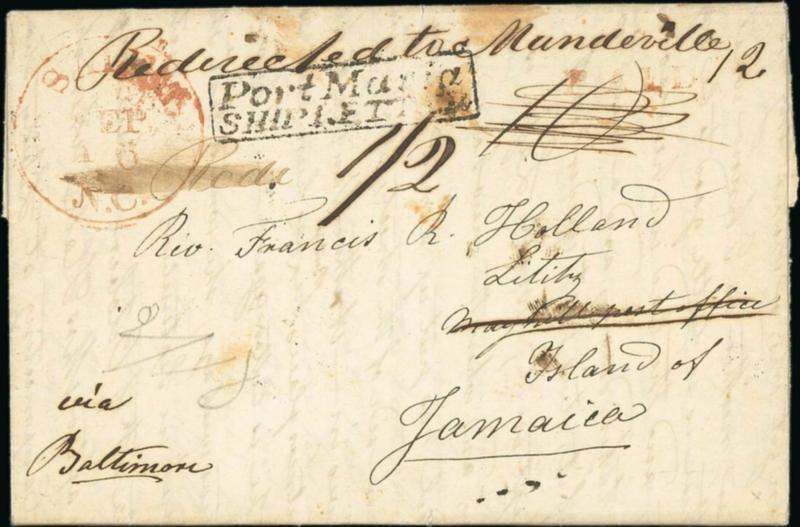 Redirected to Mandeville
12
Port Maria
SHIP LETTER
SEP
16
N.C.
Redi
1/2
10
Rev. Francis R. Holland
Lititz
May hill post office
Island of
Jamaica
via
Baltimore